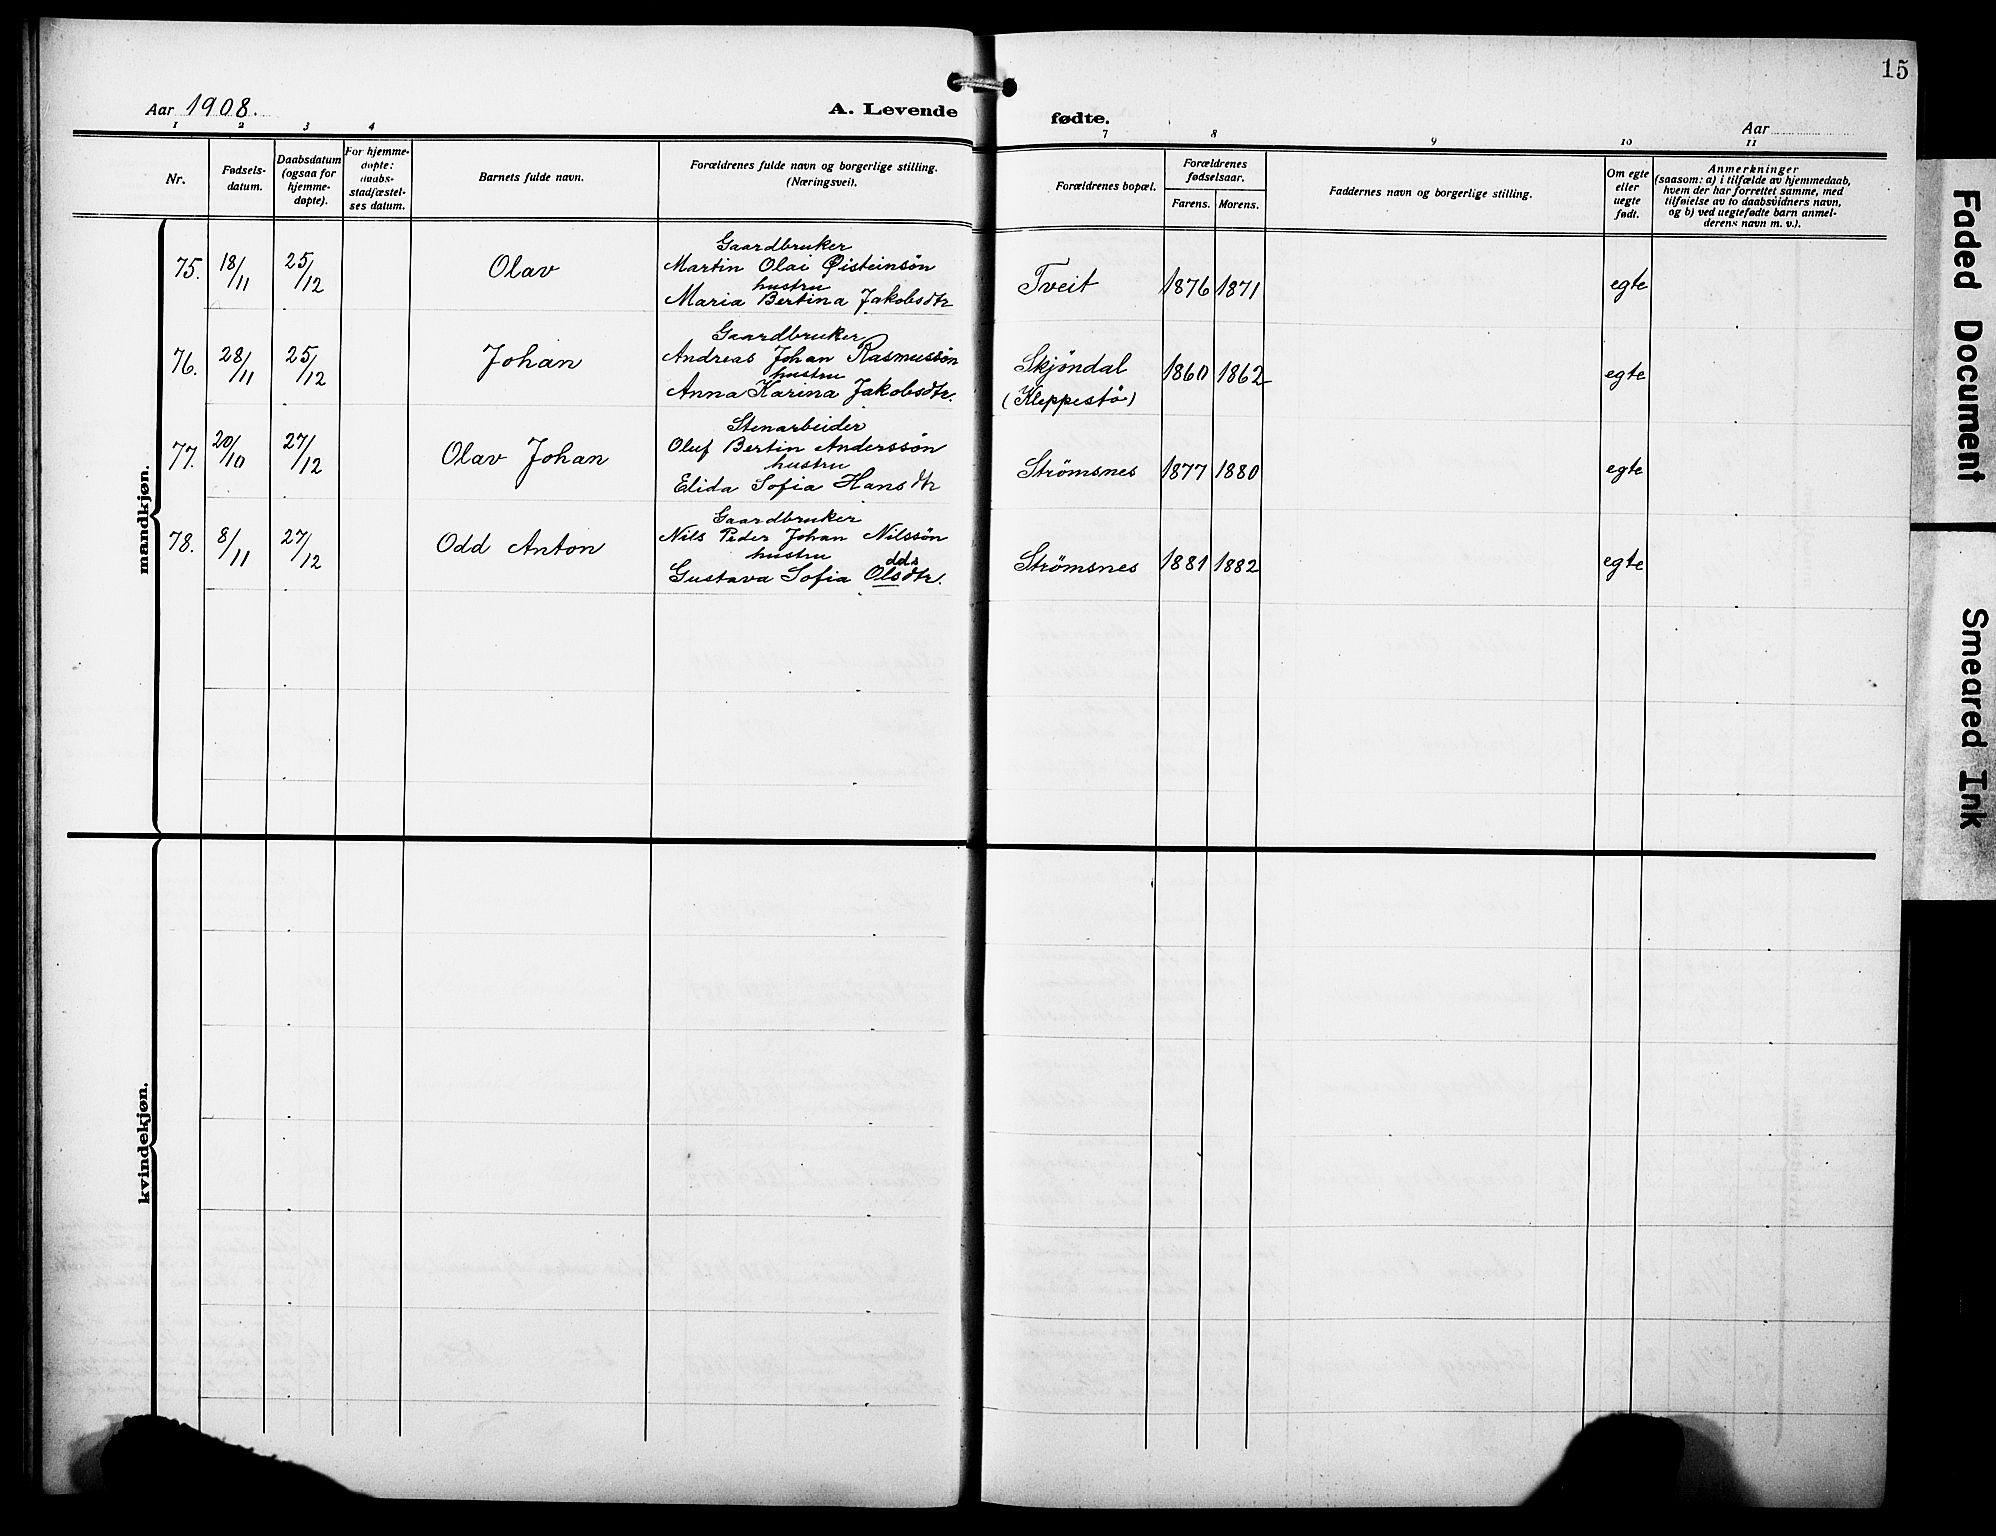 15
Aar 1908. A. Levende fødte. Aar
1 2 3 4 7 8 9 10 11
Nr.
Fødsels-
datum.
Daabsdatum
(ogsaa for
hjemme-
døpte).
For hjemme-
døpte:
daabs-
stadfæstel-
ses datum.
Barnets fulde navn.
Forældrenes fulde navn og borgerlige stilling.
(Næringsvei).
Forældrenes bopæl.
Forældrenes
fødselsaar.
Farens. Morens.
Faddernes navn og borgerlige stilling.
Om egte
eller
uegte
født.
Anmerkninger
(saasom: a) i tilfælde av hjemmedaab,
hvem der har forrettet samme, med
tilføielse av to daabsvidners navn,
og b) ved uegtefødte barn anmel-
derens navn m. v.).
mandkjøn.
Gaardbruker
75. 18/11 25/12 Olav Martin Olai Øisteinsön Tveit 1876 1871 egte
hustru
Maria Bertina Jakobsdtr
Gaardbruker
76. 28/11 25/12 Johan Andreas Johan Rasmussön Skjöndal 1860 1862 egte
hustru
Anna Karina Jakobsdtr. (Kleppestö)
Stenarbeider
77. 20/10 27/12 Olav Johan Oluf Bertin Anderssön Strömsnes 1877 1880 egte
hustru
Elida Sofia Hansdtr
Gaardbruker
78. 8/11 27/12 Odd Anton Nils Peder Johan Nilssön Strömsnes 1881 1882 egte
hustru dds
Gustava Sofia Olsdtr.
kvindekjøn.
Faded Document
Smeared Ink